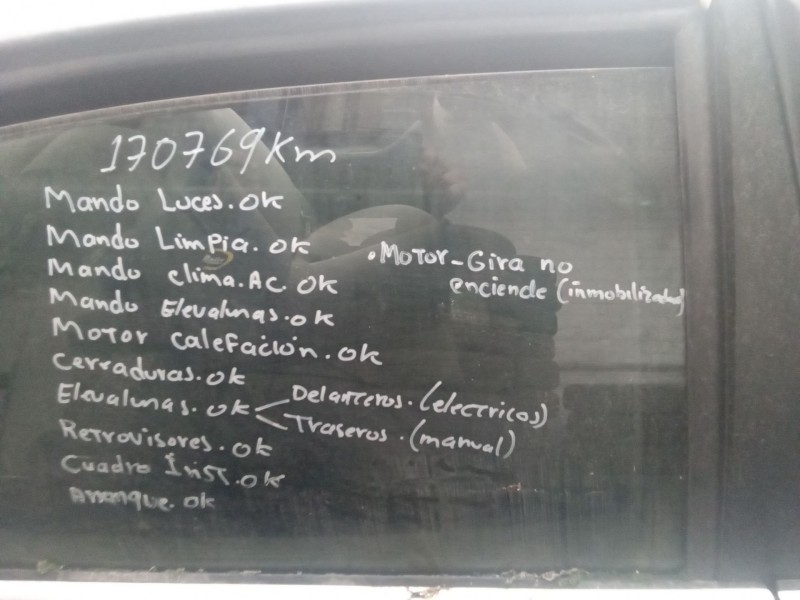 170769Km
Mando Luces.ok
Mando Limpia.ok
Mando clima.Ac.ok
Mando Elevalunas.ok
Motor calefación.ok
Cerraduras.ok
Elevalunas.ok
Delanteros.(electricos)
Traseros.(manual)
Retrovisores.ok
Cuadro Inst.ok
Arranque.ok
.Motor-Gira no
enciende (inmobilizador)